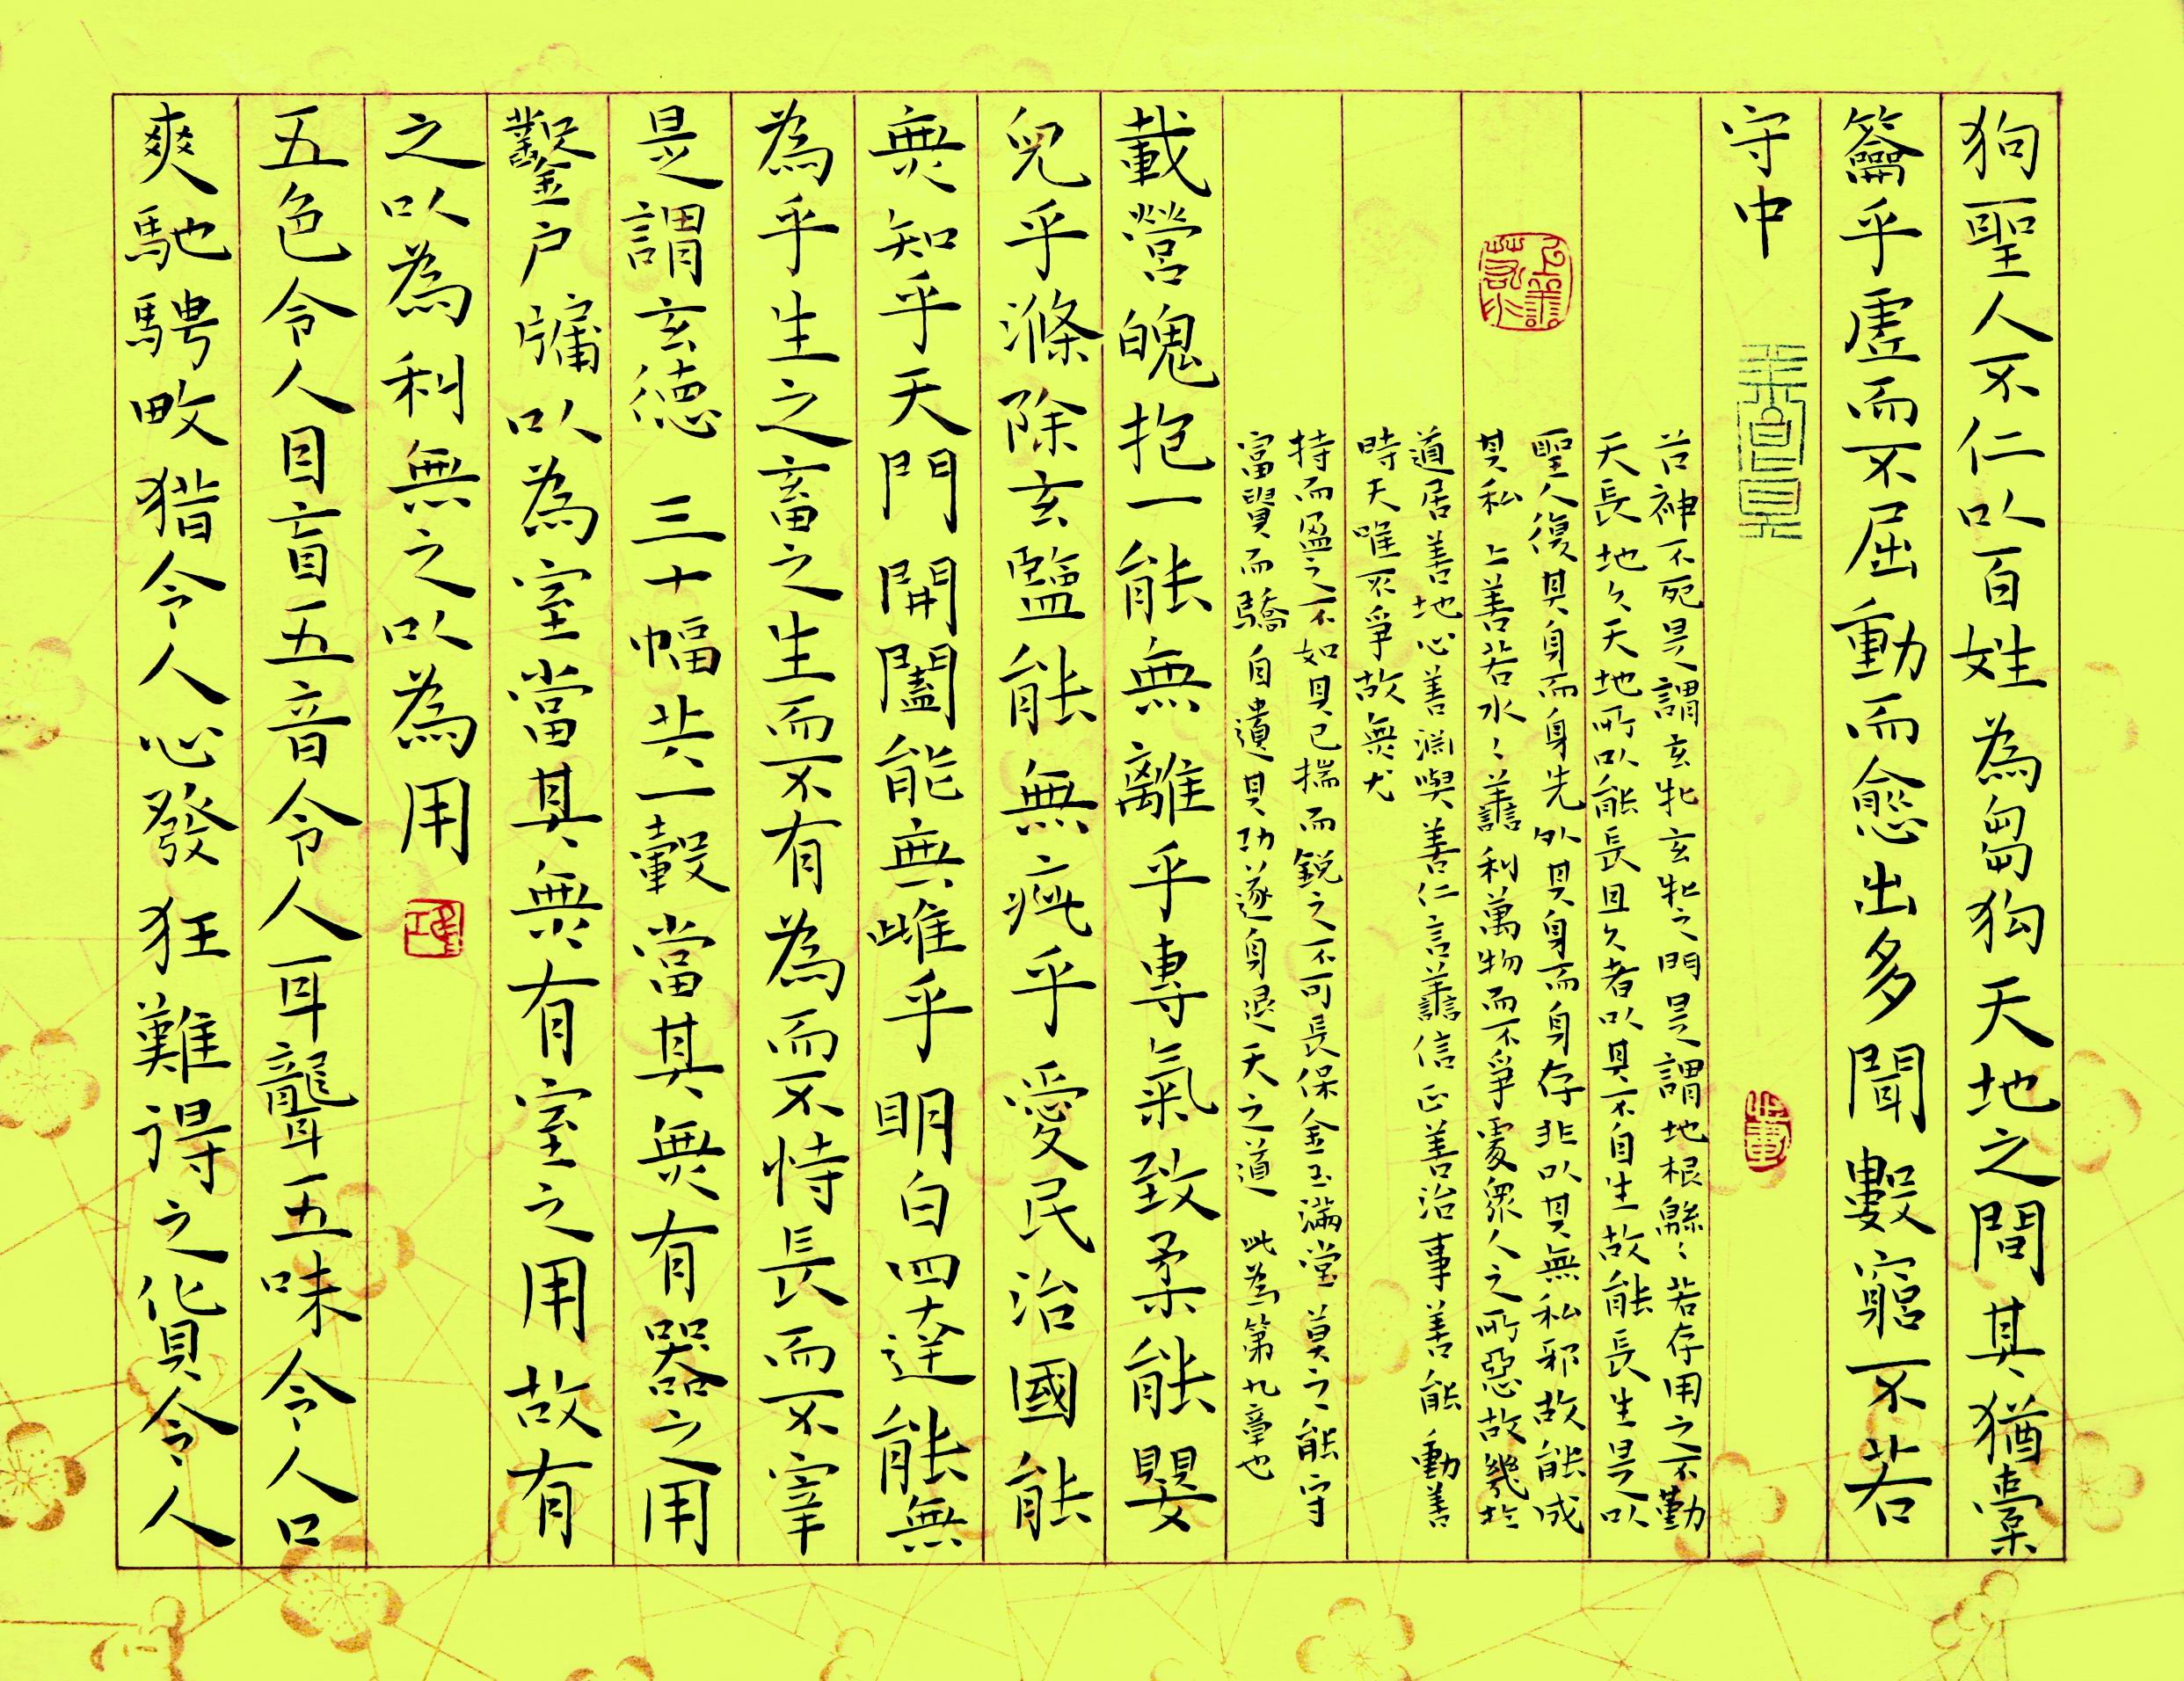 狗聖人不仁以百姓為芻狗天地之間其猶橐
籥乎虛而不屈動而愈出多聞數窮不若
守中
谷神不死是謂玄牝玄牝之門是謂地根緜〻若存用之不勤
天長地久天地所以能長且久者以其不自生故能長生是以
聖人後其身而身先外其身而身存非以其無私邪故能成
其私 上善若水〻善利萬物而不爭處眾人之所惡故幾於
道居善地心善淵與善仁言善信正善治事善能動善
時夫唯不爭故無尤
持而盈之不如其已揣而銳之不可長保金玉滿堂莫之能守
富貴而驕自遺其功遂身退天之道 此為第九章也
載營魄抱一能無離乎專氣致柔能嬰
兒乎滌除玄鑒能無疵乎愛民治國能
無知乎天門開闔能無雌乎明白四達能無
為乎生之畜之生而不有為而不恃長而不宰
是謂玄德 三十幅共一轂當其無有器之用
鑿戶牖以為室當其無有室之用故有
之以為利無之以為用
五色令人目盲五音令人耳聾五味令人口
爽馳騁畋獵令人心發狂難得之貨令人